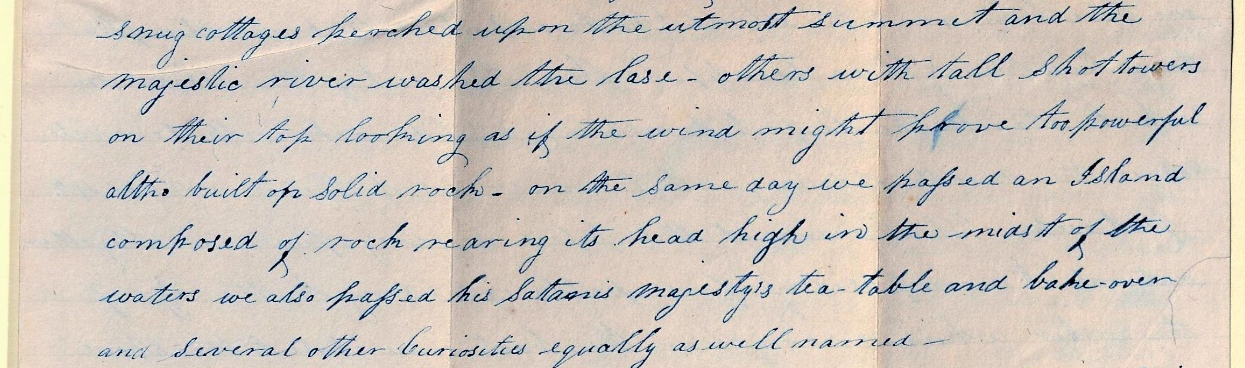 snug cottages perched upon the utmost summet and the
majestic river washed the base - others with tall Shot towers
on their top looking as if the wind might prove too powerful
altho built on Solid rock - on the same day we passed an Island
composed of rock rearing its head high in the midst of the
waters we also passed his Satanis majesty's tea-table and bake-oven
and several other Curiosities equally as well named -